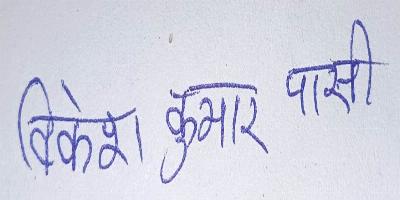 विकेश कुमार पासी